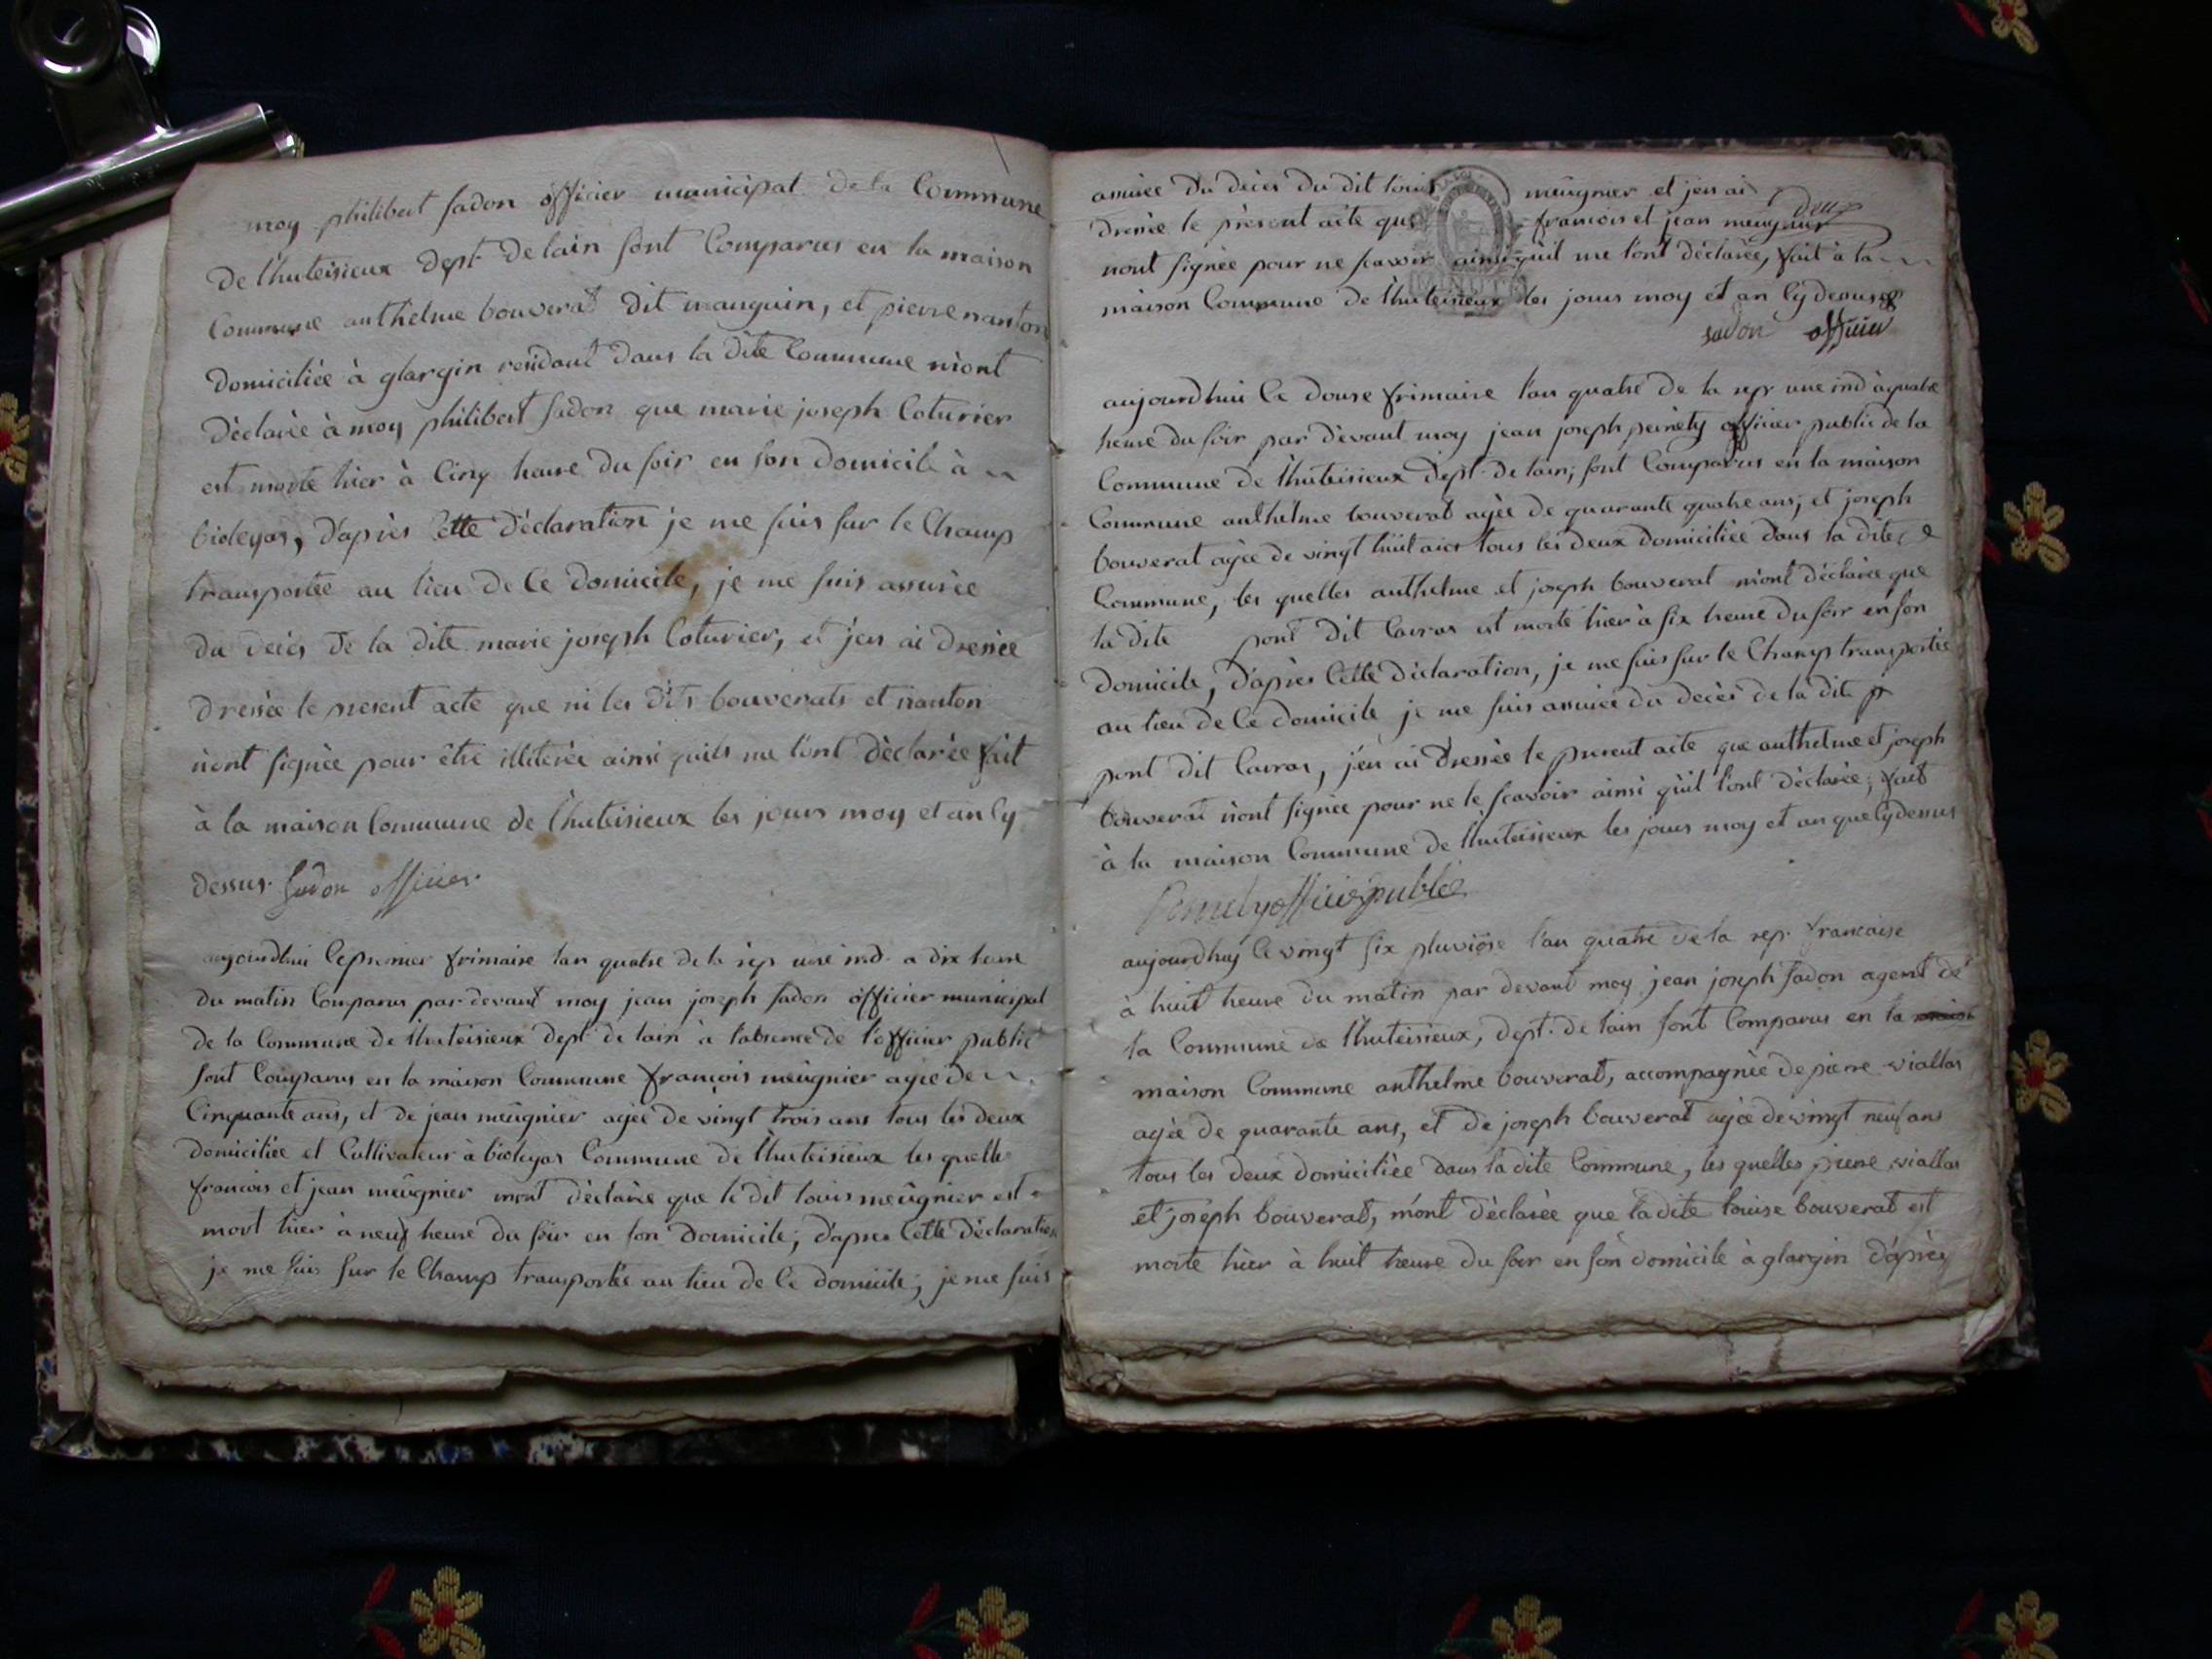 moy philibert sadon officier municipal de la Commune
de lhuteisieux dept. de lain sont Comparus en la maison
Commune anthelme bouverat dit mauguin, et pierre nanton
domiciliée à glargin residant dans la dite Commune m'ont
déclarée à moy philibert sadon que marie joseph Coturier
est morte hier à Cinq heure du soir en son domicile à
bioleyas, d'après Cette déclaration je me suis sur le Champ
transportée au lieu de Ce domicile, je me suis assurée
du decès de la dite marie joseph Coturier, et j'en ai dressée
dressée le present acte que ni les dits bouverats et nanton
n'ont signée pour être illiterée ainsi quils me l'ont déclarée fait
à la maison Commune de lhuteisieux les jours moy et an Cy
dessus. sadon officier
aujourdhui le premier frimaire lan quatre de la rep une ind. a dix heure
du matin Comparus par devant moy jean joseph sadon officier municipal
de la Commune de lhuteisieux dept de lain à l'absence de l'officier public
sont Comparus en la maison Commune francois meûgnier agée de
Cinquante ans, et de jean meûgnier agée de vingt trois ans tous les deux
domiciliée et Cultivateur à bioleyas Commune de lhuteisieux les quelle
francois et jean meûgnier mont déclarée que le dit louis meûgnier est
mort hier à neuf heure du soir en son domicile; d'apres Cette déclaration
je me suis sur le Champ transportée au lieu de Ce domicile; je me suis
assurée du decès du dit louis meûgnier et jen ai
dressée le présent acte que francois et jean meugnier
nont signée pour ne scavoir ainsi quil me l'ont déclarée, fait à la
maison Commune de lhuteisieux les jours moy et an Cy dessus
sadon officier
aujourdhui le douse frimaire l'an quatre de la rep une ind à quatre
heure du soir par devant moy jean joseph peinety officier public de la
Commune de lhuteisieux dept. de lain; sont Comparus en la maison
Commune anthelme bouverat agée de quarante quatre ans; et joseph
bouverat agée de vingt huit ans tous les deux domiciliée dans la dite
Commune, les quelles anthelme et joseph bouverat m'ont déclarée que
la dite pont dit Cavras est morte hier à six heure du soir en son
domicile, d'après Cette déclaration, je me suis sur le Champ transportée
au lieu de Ce domicile je me suis assurée du decès de la dite
pont dit Cavras, j'en ai dressée le present acte que anthelme et joseph
bouverat n'ont signée pour ne le scavoir ainsi qu'il l'ont déclarée; fait
à la maison Commune de lhuteisieux les jours moy et an que Cy dessus
officier public
aujourdhuy le vingt six pluviôse l'an quatre de la rep. francaise
à huit heure du matin par devant moy jean joseph sadon agent de
la Commune de lhuteisieux, dept. de lain sont Comparus en la
maison Commune anthelme bouverat, accompagnée de pierre viallas
agée de quarante ans, et de joseph bouverat agée de vingt neuf ans
tous les deux domiciliée dans la dite Commune, les quelles pierre viallas
et joseph bouverat, m'ont déclarée que la dite louise bouverat est
morte hier à huit heure du soir en son domicile à glargin d'après